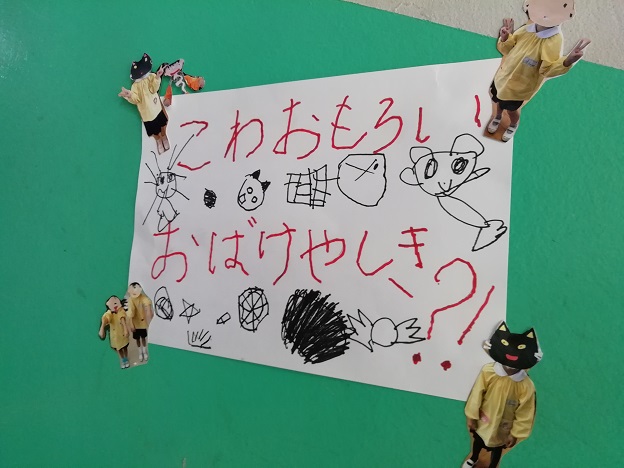 こわおもろい
おばけやしき?!